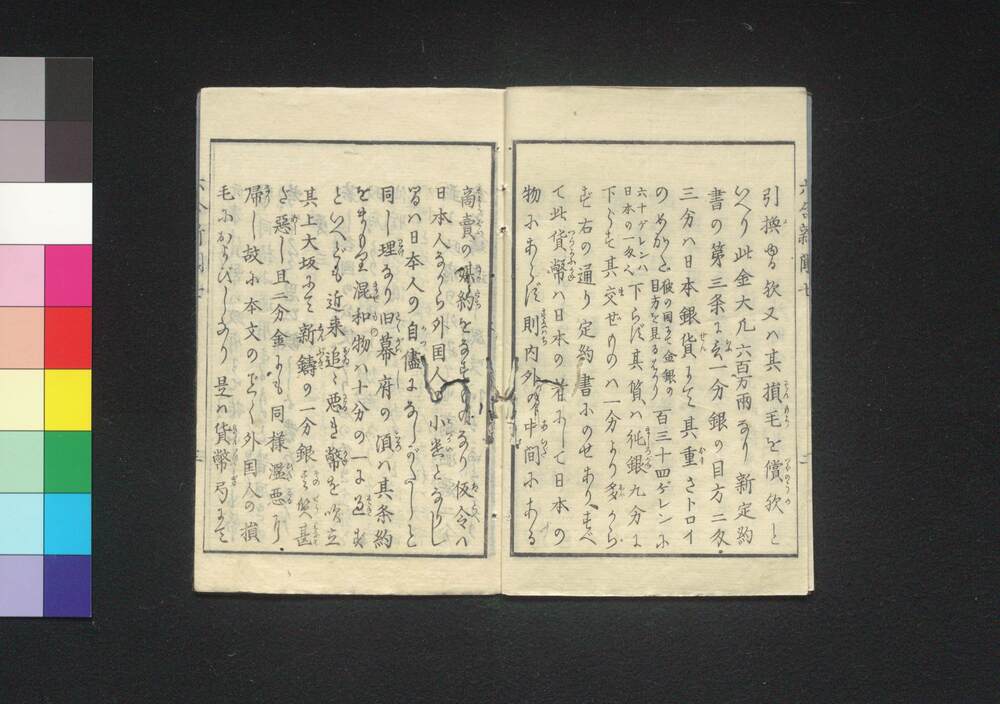 引換ゆる歟又ハ其損毛を償歟と
いへり此金大凡六百万両なり新定約
書の第三条に云一分銀の目方二匁
三分ハ日本銀貨にて其重さトロイ
のめかた
彼の国にて金銀の
目方を見るはかり
百三十四ゲレンに
六十ゲレンハ
日本の一匁
下らず其質ハ純銀九分に
下らず其交ぜものハ一分より多から
ず右の通り定約書にのせあり
て此貨幣ハ日本の
にして日本の
物にあらず則内外の中間にある
商賣の媒約をなすものなり仮令ハ
日本人ながら外国人の
るハ日本人の自儘になしがたしと
同し理なり旧幕府の頃ハ其条約
を
混和物ハ十分の一に
といへども近来追〻悪き幣を吹立
其上大坂にて新鋳の一分銀
甚
だ惡し且二分金にも同様濫悪
帰し故に本文の
外国人の損
毛に
なり是ハ貨幣局にて
六合新聞七